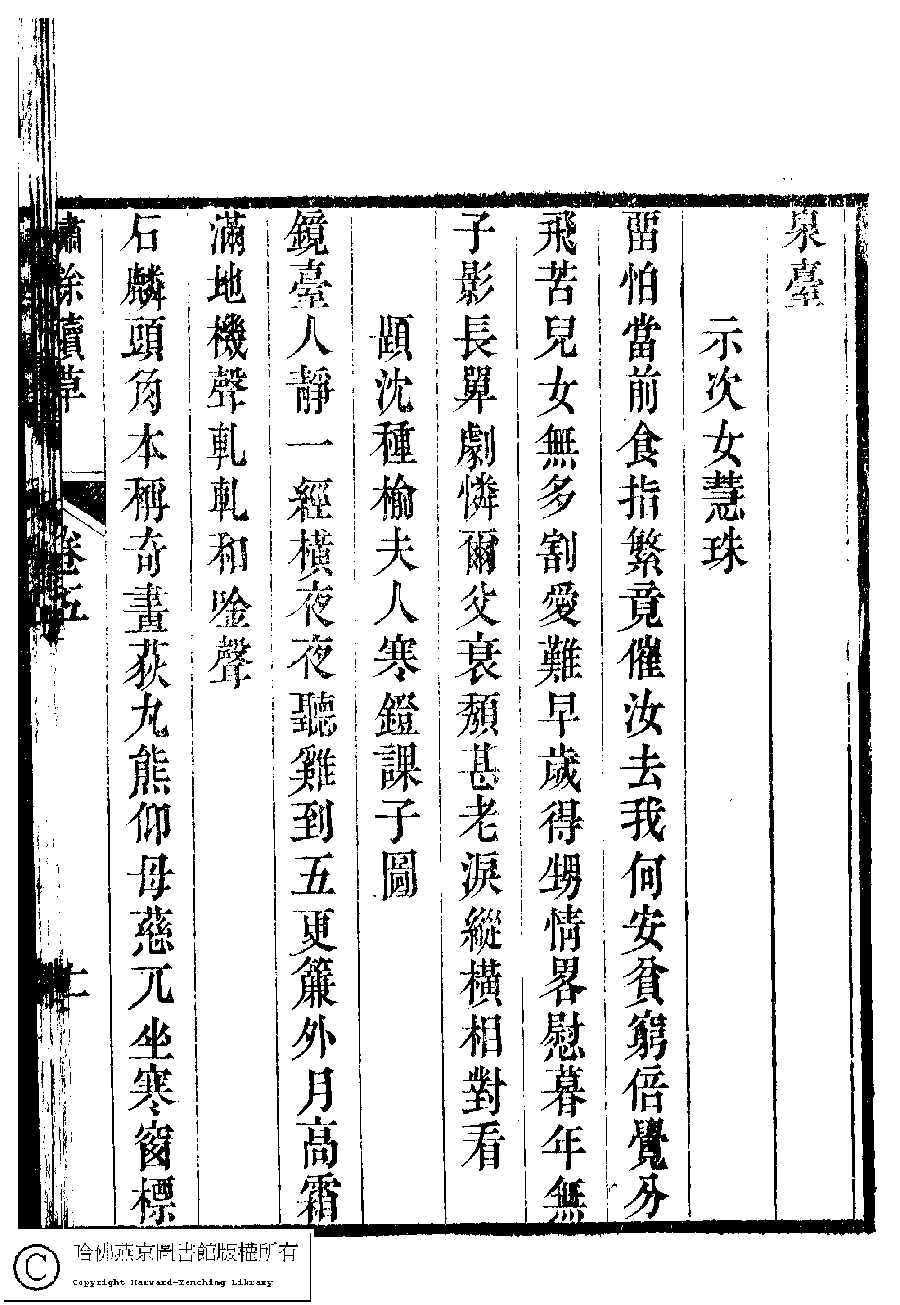 泉臺
示次女慧珠
留怕當前食指繁竟催汝去我何安貧窮倍覺分
飛苦兒女無多割愛難早歲得甥情畧慰暮年無
子影長單劇憐爾父衰頹甚老淚縱橫相對看
題沈種榆夫人寒鐙課子圖
鏡臺人靜一經橫夜夜聽雞到五更簾外月高霜
滿地機聲軋軋和唫聲
石麟頭角本稱奇畫荻丸熊仰母慈兀坐寒窗標
繡餘續草 卷五
哈佛燕京圖書館版權所有
Copyright Harvard-Yenching Library